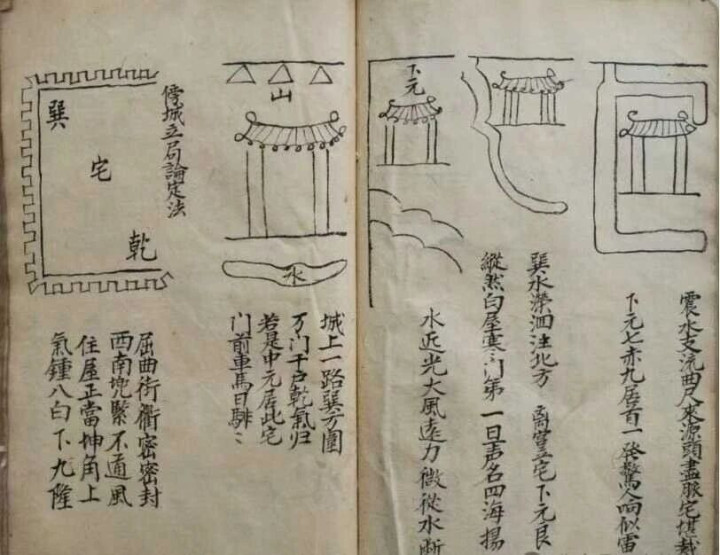 震水支流曲尺來源頭盡脈宅堪裁
下元七赤九居百一發驚人响似雷
下元
巽水瀠洄注北方 離當立宅下元良
縱然白屋寒门第 一旦声名四海揚
水近光大風遠力微從水断
山
水
城上一路巽方圍
万门千户乾氣归
若是中元居此宅
门前車馬日騑〻
傍城立局論定法
巽
宅
乾
屈曲街衢密密封
西南兜緊不通風
住屋正當坤角上
氣鍾八白下九隆